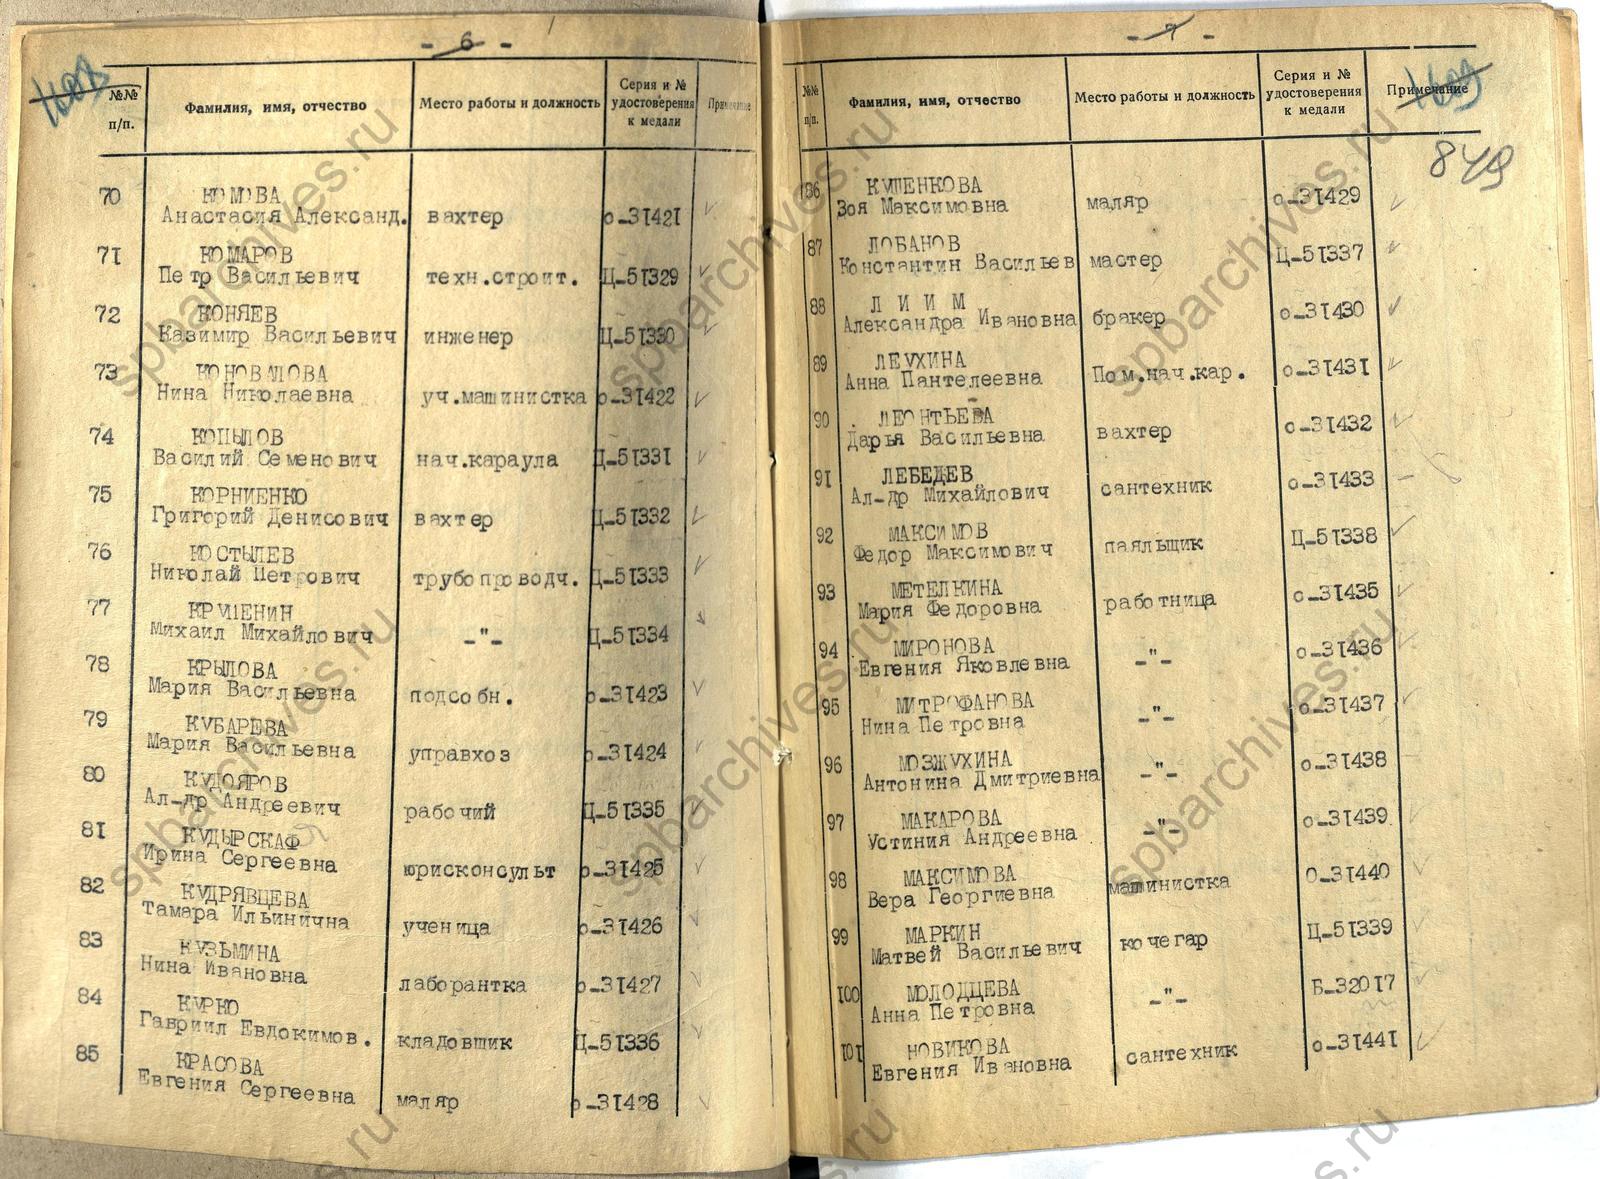 - 6 -
№№ п/п.
Фамилия, имя, отчество
Место работы и должность
Серия и № удостоверения к медали
Примечание
70 КОМОВА
Анастасия Александ. вахтер о-31421
71 КОМАРОВ
Петр Васильевич техн.строит. Ц-51329
72 КОНЯЕВ
Казимир Васильевич инженер Ц-51330
73 КОНОВАЛОВА
Нина Николаевна уч.машинистка о-31422
74 КОПЫЛОВ
Василий Семенович нач.караула Ц-51331
75 КОРНИЕНКО
Григорий Денисович вахтер Ц-51332
76 КОСТЫЛЕВ
Николай Петрович трубопроводч. Ц-51333
77 КРУПЕНИН
Михаил Михайлович -"- Ц-51334
78 КРЫЛОВА
Мария Васильевна подсобн. о-31423
79 КУБАРЕВА
Мария Васильевна управхоз о-31424
80 КУДОЯРОВ
Ал-др Андреевич рабочий Ц-51335
81 КУДЫРСКАФ
Ирина Сергеевна юрисконсульт о-31425
82 КУДРЯВЦЕВА
Тамара Ильинична ученица о-31426
83 КУЗЬМИНА
Нина Ивановна лаборантка о-31427
84 КУРКО
Гавриил Евдокимов. кладовщик Ц-51336
85 КРАСОВА
Евгения Сергеевна маляр о-31428
- 7 -
№№ п/п.
Фамилия, имя, отчество
Место работы и должность
Серия и № удостоверения к медали
Примечание
1609
849
86 КУПЕНКОВА
Зоя Максимовна маляр о-31429
87 ЛОБАНОВ
Константин Васильев мастер Ц-51337
88 Л И И М
Александра Ивановна бракер о-31430
89 ЛЕУХИНА
Анна Пантелеевна Пом.нач.кар. о-31431
90 ЛЕОНТЬЕВА
Дарья Васильевна вахтер о-31432
91 ЛЕБЕДЕВ
Ал-др Михайлович сантехник о-31433
92 МАКСИМОВ
Федор Максимович паяльщик Ц-51338
93 МЕТЕЛКИНА
Мария Федоровна работница о-31435
94 МИРОНОВА
Евгения Яковлевна -"- о-31436
95 МИТРОФАНОВА
Нина Петровна -"- о-31437
96 МОЗЖУХИНА
Антонина Дмитриевна -"- о-31438
97 МАКАРОВА
Устиния Андреевна -"- о-31439
98 МАКСИМОВА
Вера Георгиевна машинистка О-31440
99 МАРКИН
Матвей Васильевич кочегар Ц-51339
100 МОЛОДЦЕВА
Анна Петровна -"- Б-32017
101 НОВИКОВА
Евгения Ивановна сантехник о-31441
spbarchives.ru